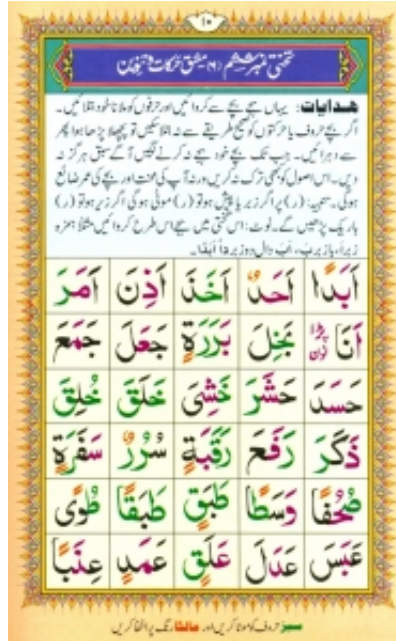 ١٥
تختی نمبر ششم (٦) مشق حرکات و تنوین
ھدایات: یہاں سے بچے سے ہجے کروائیں اور حرفوں کو ملانا خود بتلائیں۔
اگر بچے حروف یا حرکتوں کو صحیح طریقے سے نہ بتلائیں تو پچھلا پڑھا ہوا پھر
سے دہرائیں۔ جب تک بچے خود ہجے نہ کرنے لگیں آگے سبق ہرگز نہ
دیں۔ اس اصول کو کبھی ترک نہ کریں ورنہ آپ کی محنت اور بچے کی عمر ضائع
ہوگی۔ (ر) پر اگر زبر یا پیش ہو تو (ر) موٹی ہوگی اگر زیر ہو تو (ر)
باریک پڑھیں گے۔ نوٹ: اس تختی میں ہجے اس طرح کروائیں مثلاً ہمزہ
زبر اَ، با زبر بَ، اَبَ دال دو زبر داً اَبَدًا۔
اَبَدًا اَحَدٌ اَخَذَ اَذِنَ اَمَرَ
اَنَا بَخِلَ بَرَرَةٍ جَعَلَ جَمَعَ
حَسَدَ حَشَرَ خَشِیَ خَلَقَ خُلِقَ
ذَكَرَ رَفَعَ رَقَبَةٍ سُرُرٌ سَفَرَةٍ
صُحُفًا وَسَطًا طَبَقٍ طَبَقًا طُوًی
عَبَسَ عَدَلَ عَلَقٍ عَمَدٍ عِنَبًا
سبز حروف کو موٹا کریں اور مالٹا رنگ پر اخفا کریں